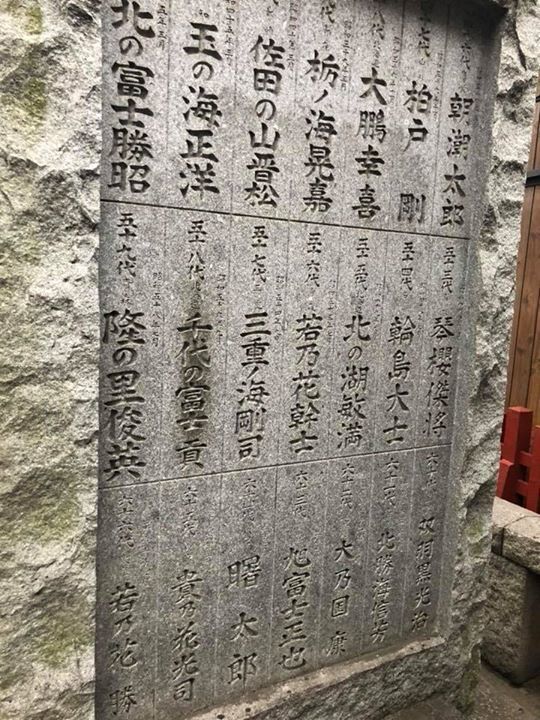 六代
朝潮太郎
十七代
柏戸 剛
八代
大鵬幸喜
代
栃ノ海晃嘉
佐田の山晋松
玉の海正洋
北の富士勝昭
五十三代
琴櫻傑将
五十四代
輪島大士
五十五代
北の湖敏満
五十六代
若乃花幹士
五十七代
三重ノ海剛司
五十八代
千代の富士 貢
五十九代
隆の里俊英
六十代
双羽黒光治
六十一代
北勝海信芳
六十二代
大乃国 康
六十三代
旭富士正也
六十四代
曙 太郎
六十五代
貴乃花光司
六十六代
若乃花 勝